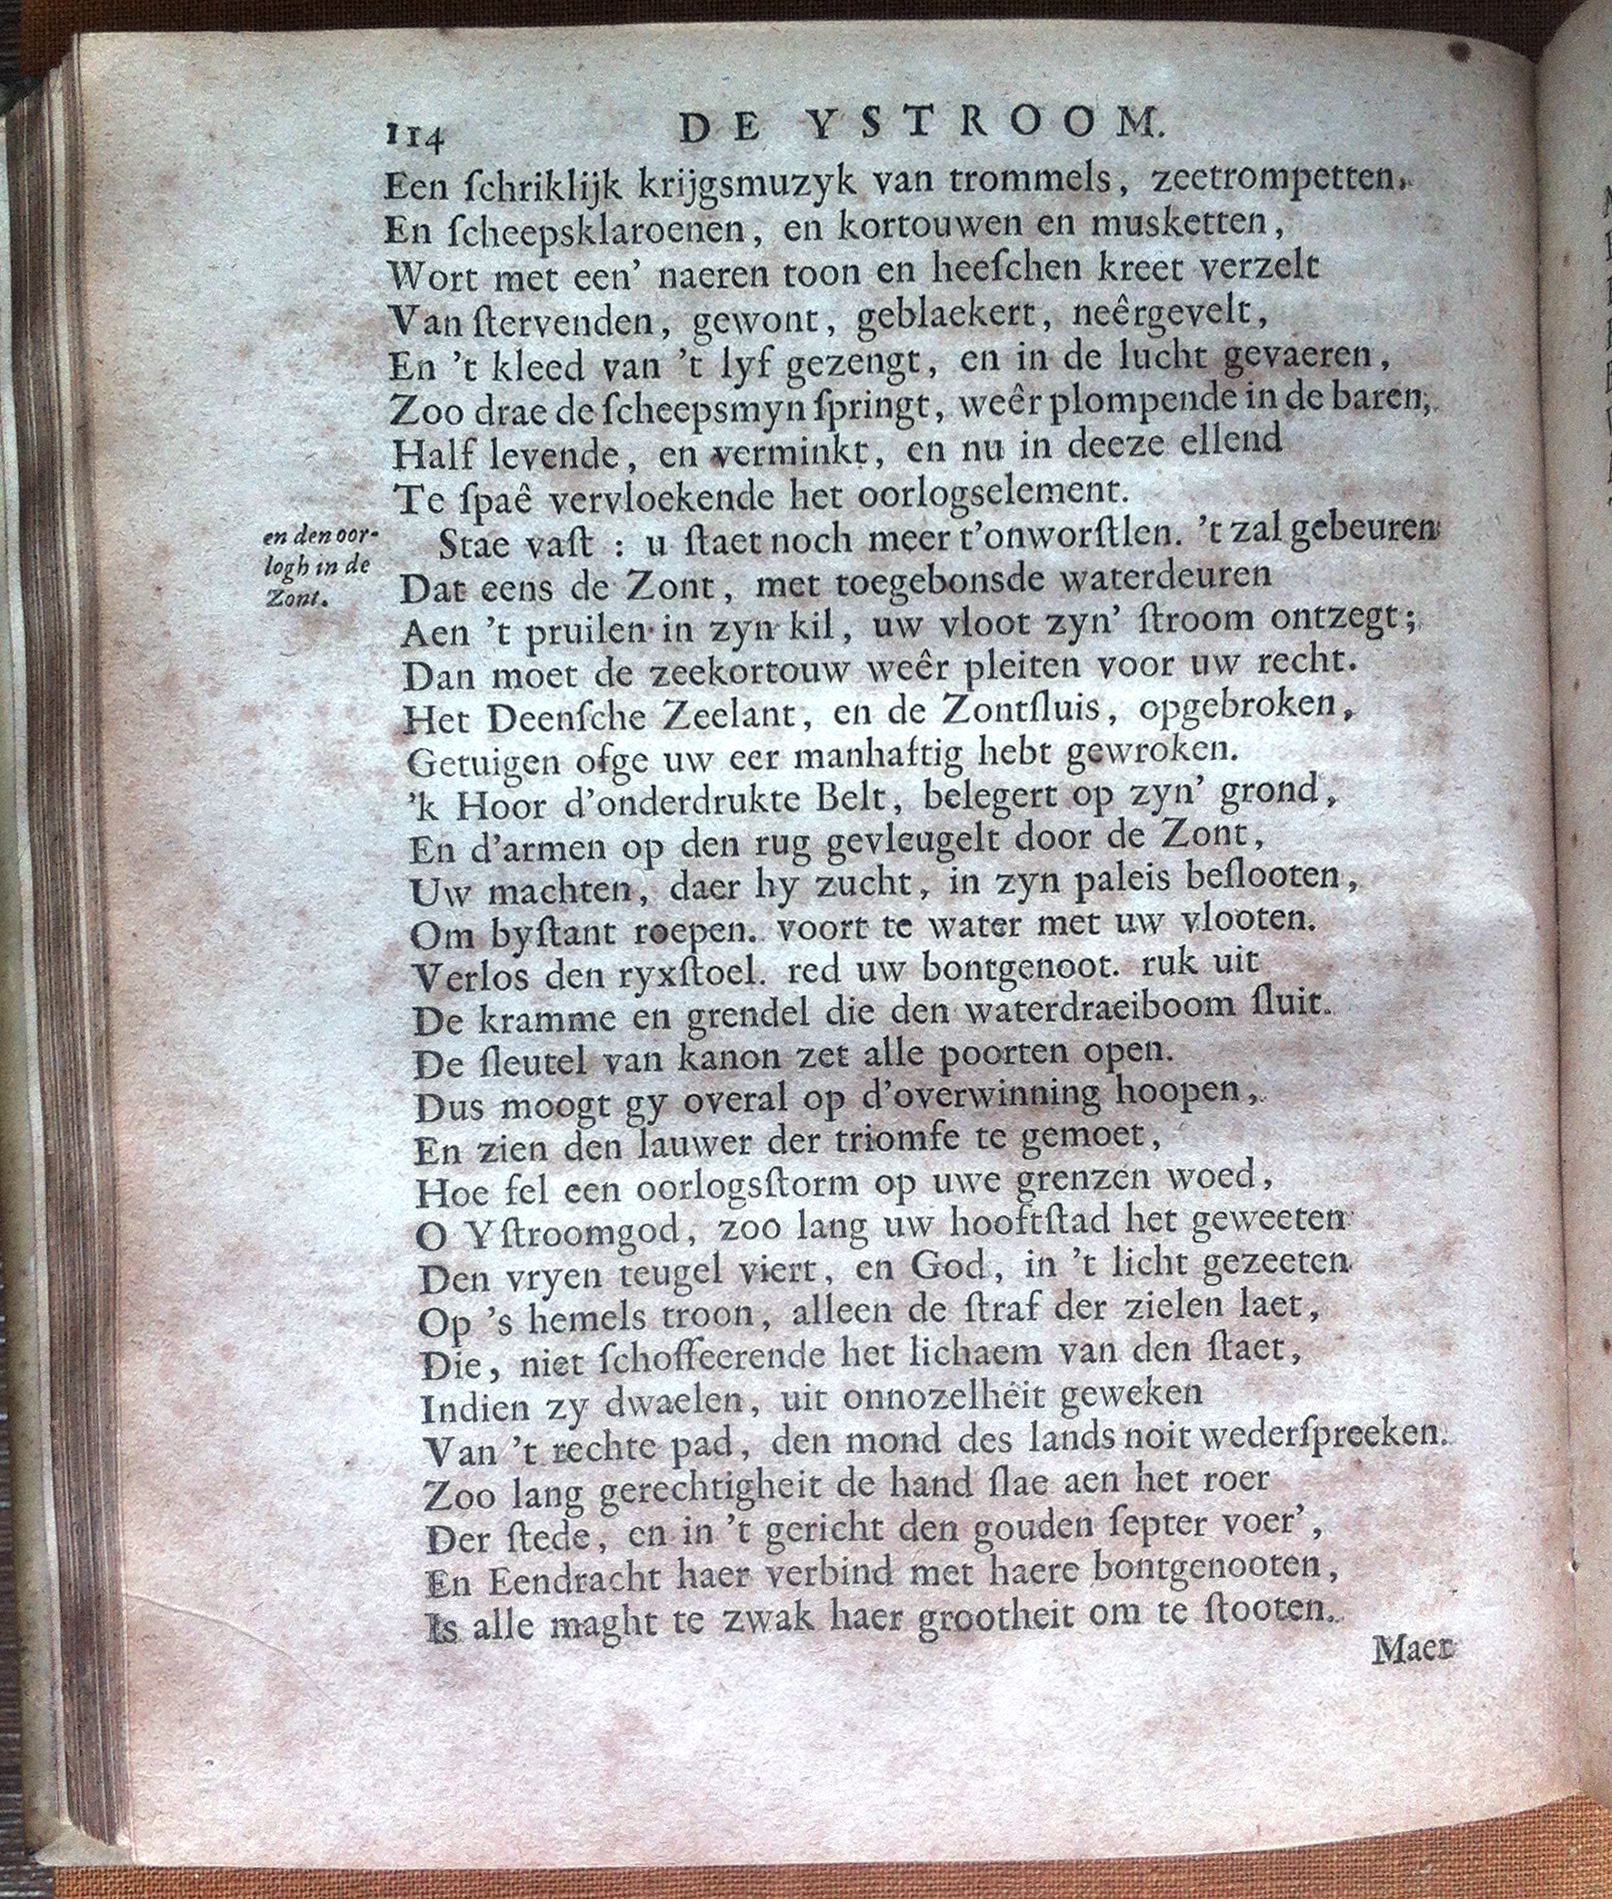 114 DE YSTROOM.
Een ſchriklijk krijgsmuzyk van trommels, zeetrompetten,
En ſcheepsklaroenen, en kortouwen en musketten,
Wort met een’ naeren toon en heeſchen kreet verzelt
Van ſtervenden, gewont, geblaekert, neêrgevelt,
En ’t kleed van ’t lyf gezengt, en in de lucht gevaeren,
Zoo drae de ſcheepsmyn ſpringt, weêr plompende in de baren,
Half levende, en verminkt, en nu in deeze ellend
Te ſpaê vervloekende het oorlogselement.
en den oor-
logh in de
Zont.
Stae vaſt : u ſtaet noch meer t’onworſtlen. ’t zal gebeuren
Dat eens de Zont, met toegebonsde waterdeuren
Aen ’t pruilen in zyn kil, uw vloot zyn’ ſtroom ontzegt;
Dan moet de zeekortouw weêr pleiten voor uw recht.
Het Deenſche Zeelant, en de Zontſluis, opgebroken,
Getuigen ofge uw eer manhaftig hebt gewroken.
’k Hoor d’onderdrukte Belt, belegert op zyn’ grond,
En d’armen op den rug gevleugelt door de Zont,
Uw machten, daer hy zucht, in zyn paleis beſlooten,
Om byſtant roepen. voort te water met uw vlooten.
Verlos den ryxſtoel. red uw bontgenoot. ruk uit
De kramme en grendel die den waterdraeiboom ſluit.
De ſleutel van kanon zet alle poorten open.
Dus moogt gy overal op d’overwinning hoopen,
En zien den lauwer der triomfe te gemoet,
Hoe fel een oorlogsſtorm op uwe grenzen woed,
O Yſtroomgod, zoo lang uw hooftſtad het geweeten
Den vryen teugel viert, en God, in ’t licht gezeeten
Op ’s hemels troon, alleen de ſtraf der zielen laet,
Die, niet ſchoffeerende het lichaem van den ſtaet,
Indien zy dwaelen, uit onnozelheit geweken
Van ’t rechte pad, den mond des lands noit wederſpreeken.
Zoo lang gerechtigheit de hand ſlae aen het roer
Der ſtede, en in ’t gericht den gouden ſepter voer’,
En Eendracht haer verbind met haere bontgenooten,
Is alle maght te zwak haer grootheit om te ſtooten.
Maer